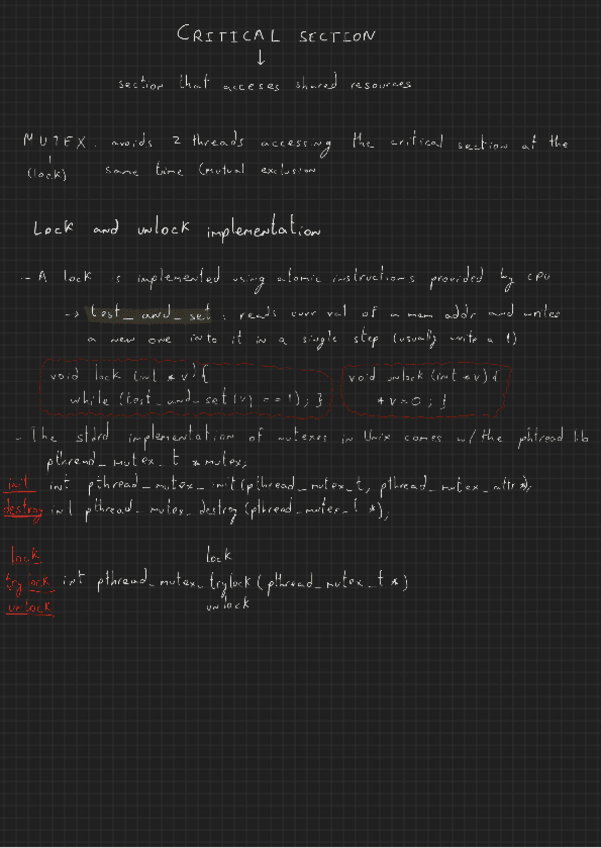 CRITICAL SECTION
↓
section that acceses shared resources
MUTEX. avoids 2 threads accessing the critical section at the
(lock) same time (mutual exclusion
Lock and unlock implementation
- A lock is implemented using atomic instructions provided by cpu
-> test_and_set : reads curr val of a mem addr and writes
a new one into it in a single step (usually write a 1)
void lock (int * v) {
while (test_and_set (v) == 1); }
void unlock (int *v) {
*v=0 ; }
- The stdrd implementation of mutexes in Unix comes w/ the phtread lib
pthread_mutex_t *mutex;
init int pthread_mutex_init(pthread_mutex_t, pthread_mutex_attr *);
destroy int pthread_mutex_destroy (pthread_mutex_t *);
lock lock
try lock int pthread_mutex_trylock (pthread_mutex_t *)
unlock unlock